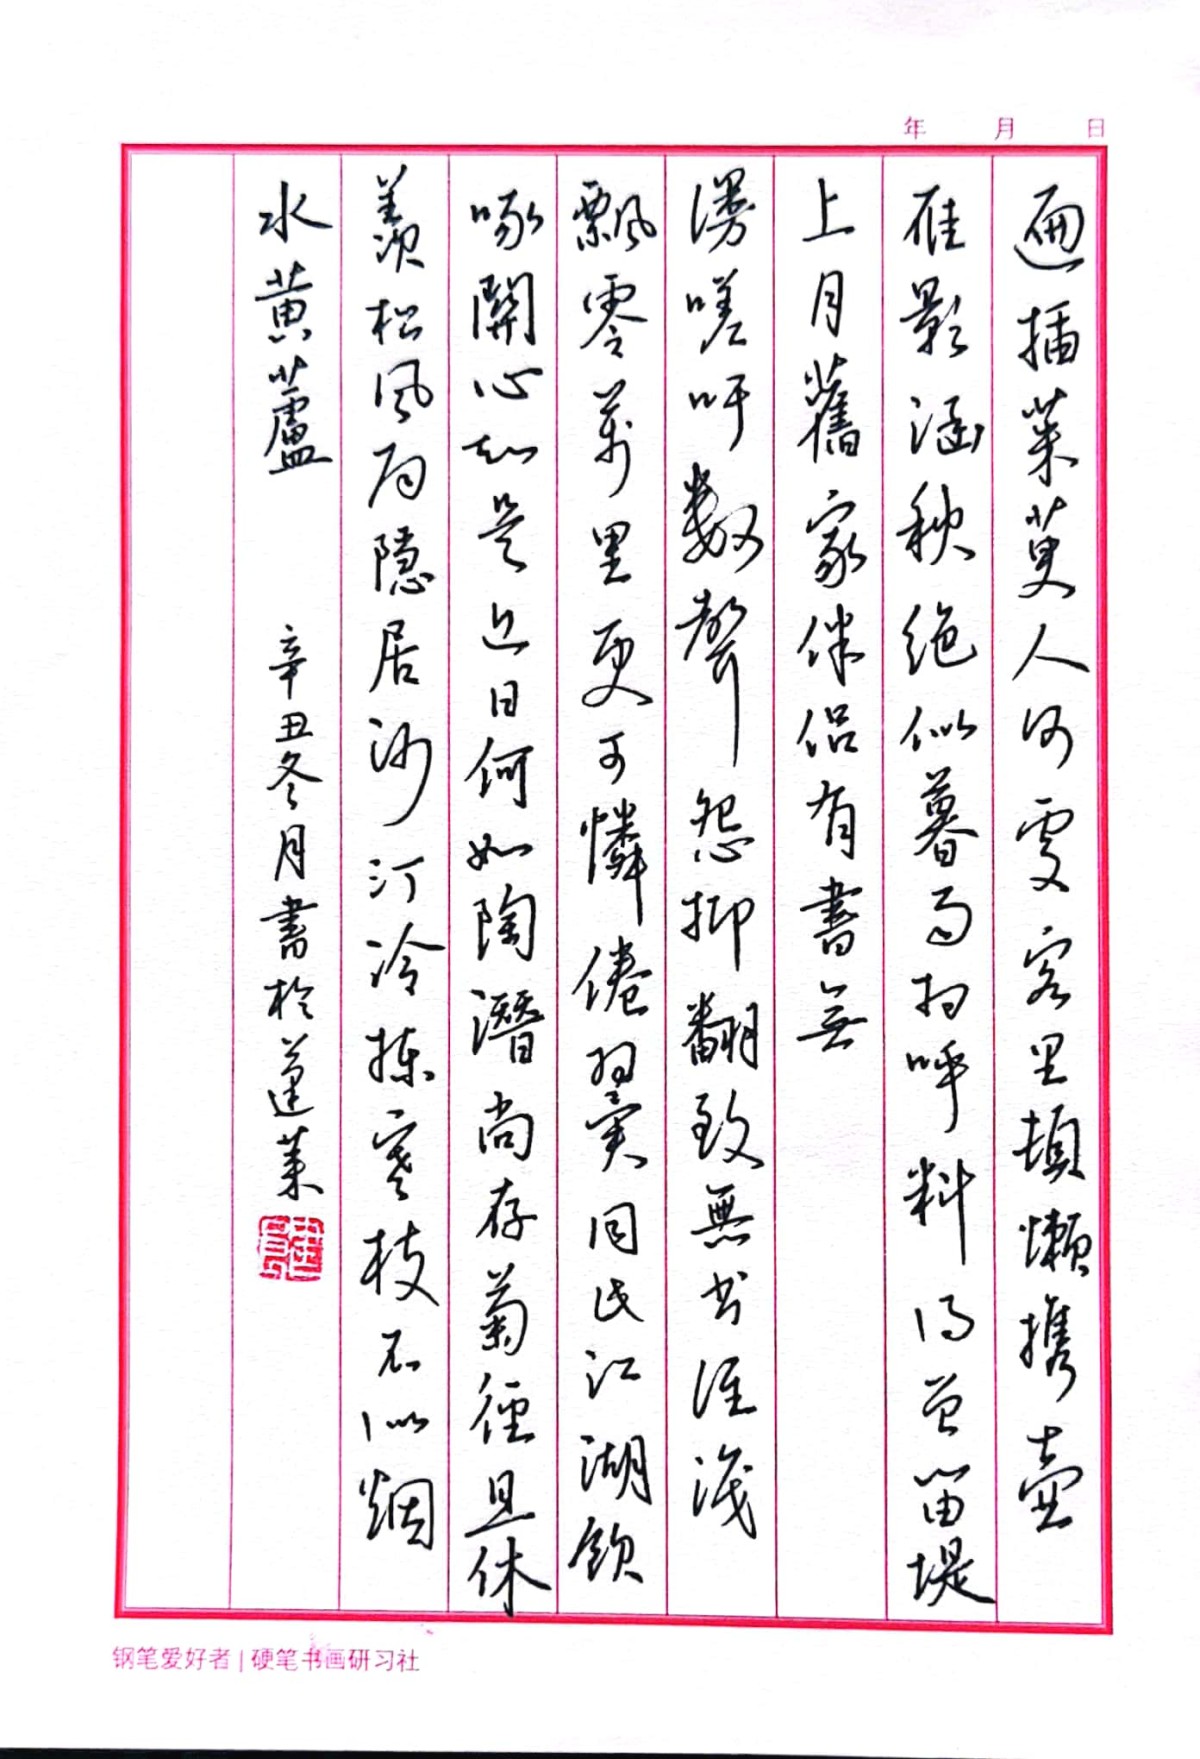 年 月 日
遍插茱萸人何處客里頓懶携壺
雁影涵秋绝似暮雨相呼料得曾留堤
上月舊家伴侣有書無
谩嗟吁数聲怨抑翻致無书谁識
飄零萬里更可憐倦翼同此江湖飲
啄關心知是近日何如陶潛尚存菊徑且休
羨松風陶隐居沙汀冷揀寒枝不似烟
水黄蘆 辛丑冬月書於蓬莱
钢笔爱好者 | 硬笔书画研习社